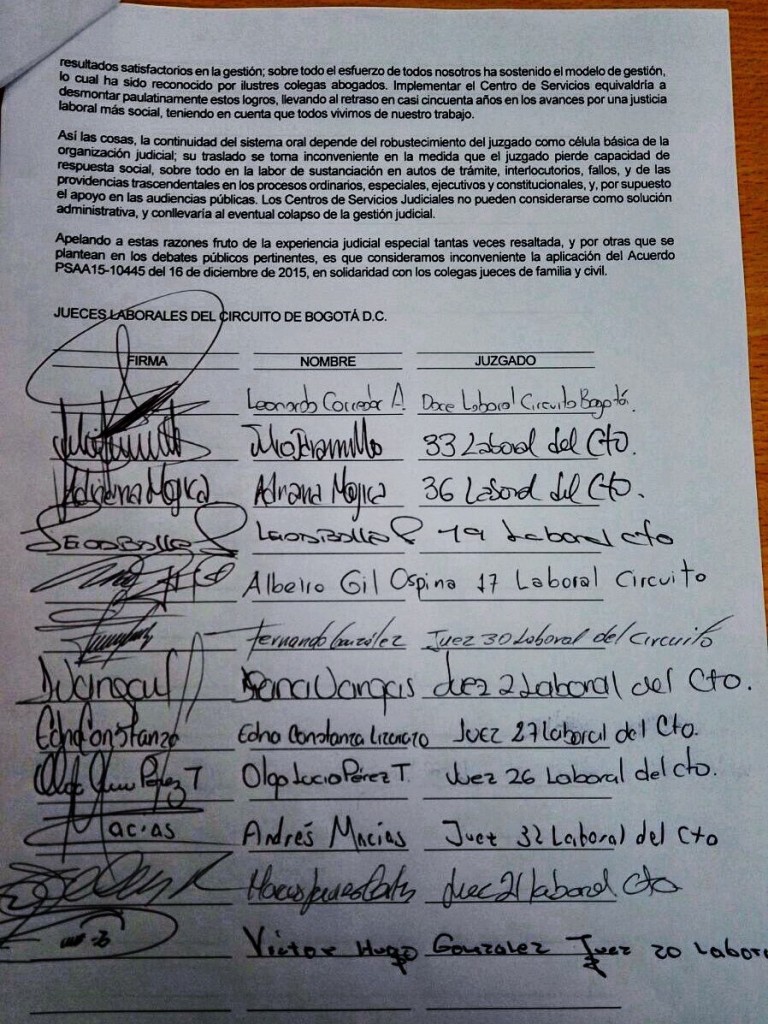 resultados satisfactorios en la gestión; sobre todo el esfuerzo de todos nosotros ha sostenido el modelo de gestión,
lo cual ha sido reconocido por ilustres colegas abogados. Implementar el Centro de Servicios equivaldría a
desmontar paulatinamente estos logros, llevando al retraso en casi cincuenta años en los avances por una justicia
laboral más social, teniendo en cuenta que todos vivimos de nuestro trabajo.
Así las cosas, la continuidad del sistema oral depende del robustecimiento del juzgado como célula básica de la
organización judicial; su traslado se torna inconveniente en la medida que el juzgado pierde capacidad de
respuesta social, sobre todo en la labor de sustanciación en autos de trámite, interlocutorios, fallos, y de las
providencias trascendentales en los procesos ordinarios, especiales, ejecutivos y constitucionales, y, por supuesto
el apoyo en las audiencias públicas. Los Centros de Servicios Judiciales no pueden considerarse como solución
administrativa, y conllevaría al eventual colapso de la gestión judicial.
Apelando a estas razones fruto de la experiencia judicial especial tantas veces resaltada, y por otras que se
plantean en los debates públicos pertinentes, es que consideramos inconveniente la aplicación del Acuerdo
PSAA15-10445 del 16 de diciembre de 2015, en solidaridad con los colegas jueces de familia y civil.
JUECES LABORALES DEL CIRCUITO DE BOGOTÁ D.C.
FIRMA NOMBRE JUZGADO
Leonardo Corredor A. Doce Laboral Circuito Bogotá.
33 Laboral del Cto.
Adriana Mojica Adriana Mojica 36 Laboral del Cto.
19 Laboral cto
Albeiro Gil Ospina 17 Laboral Circuito
Fernando González Juez 30 Laboral del Circuito
Vargas Juez 2 Laboral del Cto.
Edna Constanza Edna Constanza Juez 27 Laboral del Cto.
Olga Lucia Pérez T Olga Lucia Pérez T. Juez 26 Laboral del cto.
Macias Andrés Macias Juez 32 Laboral del Cto
Juez 21 laboral Cto
Victor Hugo Gonzalez Juez 20 Labor